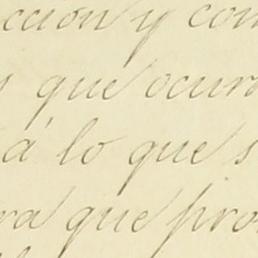 ccion y com
que ocurr
á lo que s
ra que pro